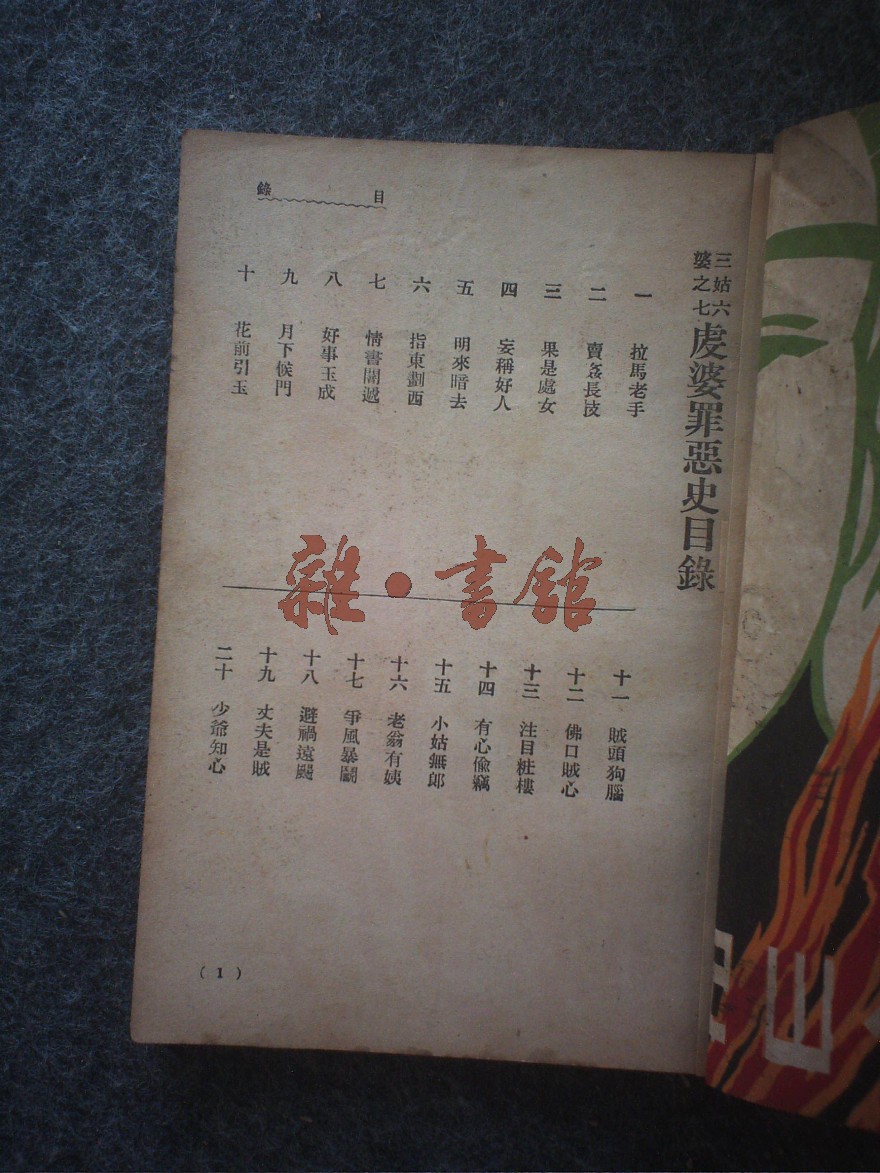 目錄
三姑六
婆之七
虔婆罪惡史目錄
一 拉馬老手
二 賣姦長技
三 果是處女
四 妄稱好人
五 明來暗去
六 指東劃西
七 情書遞
八 好事玉成
九 月下候門
十 花前引玉
十一 賊頭狗腦
十二 佛口賊心
十三 注目粧樓
十四 有心偷竊
十五 小姑無郎
十六 老翁有姨
十七 爭風暴鬭
十八 避禍遠颺
十九 丈夫是賊
二十 少爺知心
(1)
雜·書館